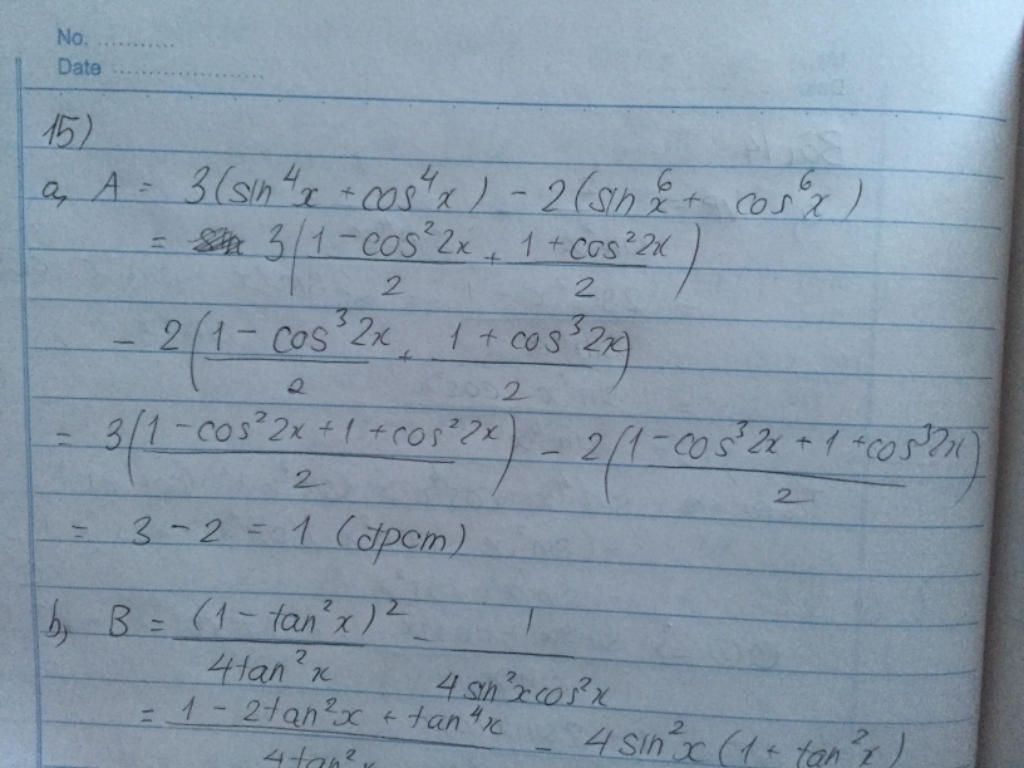 No. ............
Date ......................
15)
a, A = 3(sin⁴x + cos⁴x) - 2(sin⁶x + cos⁶x)
= 3((1 - cos²2x)/2 + (1 + cos²2x)/2)
- 2((1 - cos³2x)/2 + (1 + cos³2x)/2)
= 3((1 - cos²2x + 1 + cos²2x)/2) - 2((1 - cos³2x + 1 + cos³2x)/2)
= 3 - 2 = 1 (đpcm)
b, B = (1 - tan²x)²/4tan²x - 1/4sin²xcos²x
= (1 - 2tan²x + tan⁴x)/4tan²x - 4sin²x(1 + tan²x)